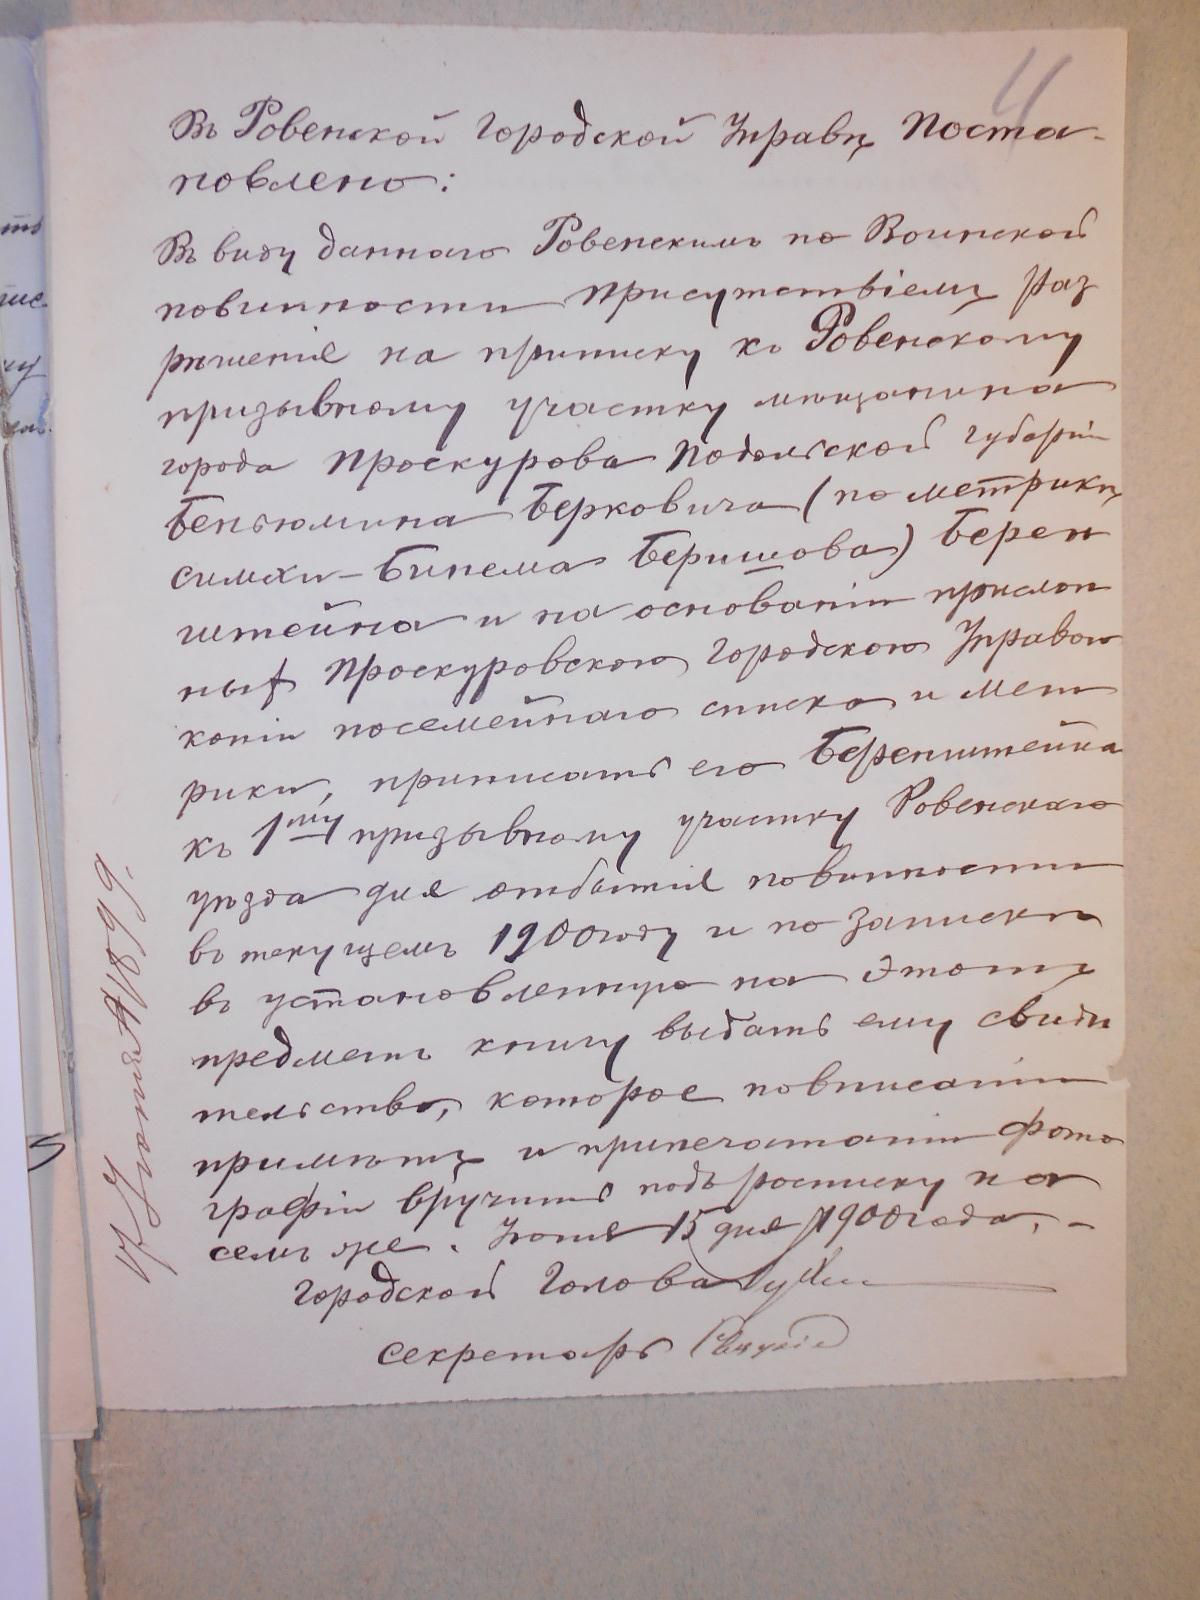 4
Въ Ровенской Городской Управѣ Поста-
новлено:
Въ виду даннаго Ровенскимъ по Воинской
повинности присутствіемъ раз
рѣшенія на приписку къ Ровенскому
призывному участку мѣщанина
города Проскурова Подольской губерніи
Беньюмина Берковича (по метрикѣ
Симхи-Бинема Беришова) Берен
штейна и на основаніи прислан
ныхъ Проскуровскою Городскою Управою
копіи посемейнаго списка и мет
рики, приписать его Беренштейна
къ 1му призывному участку Ровенскаго
уѣзда для отбытія повинности
въ текущемъ 1900 году и по запискѣ
въ установленную на этотъ
предметъ книгу выдать ему свидѣ
тельство, которое по вписаніи
примѣтъ и припечатаніи фото
графіи вручить подъ росписку на
семъ же. Іюня 15 дня 1900 года.-
Городской Голова
Секретарь
№ 1899.